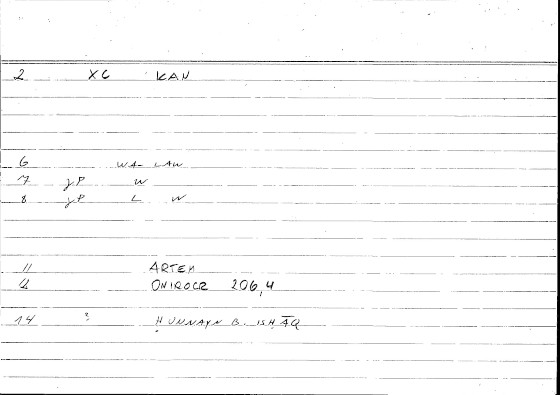 2 XG KAN
6 WA LAW
7 jP W
8 jP L W
11 ARTEM
12 ONIROCR 206,4
14 ? ḤUNNAYN B. ISḤĀQ